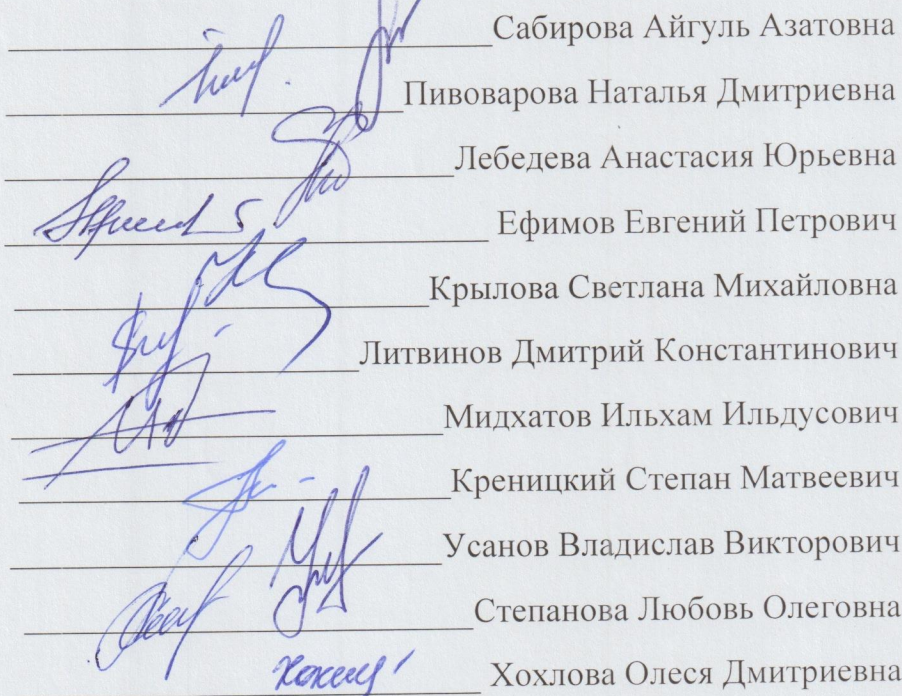 Сабирова Айгуль Азатовна
Пивоварова Наталья Дмитриевна
Лебедева Анастасия Юрьевна
Ефимов Евгений Петрович
Крылова Светлана Михайловна
Литвинов Дмитрий Константинович
Мидхатов Ильхам Ильдусович
Креницкий Степан Матвеевич
Усанов Владислав Викторович
Степанова Любовь Олеговна
Хохлова Олеся Дмитриевна